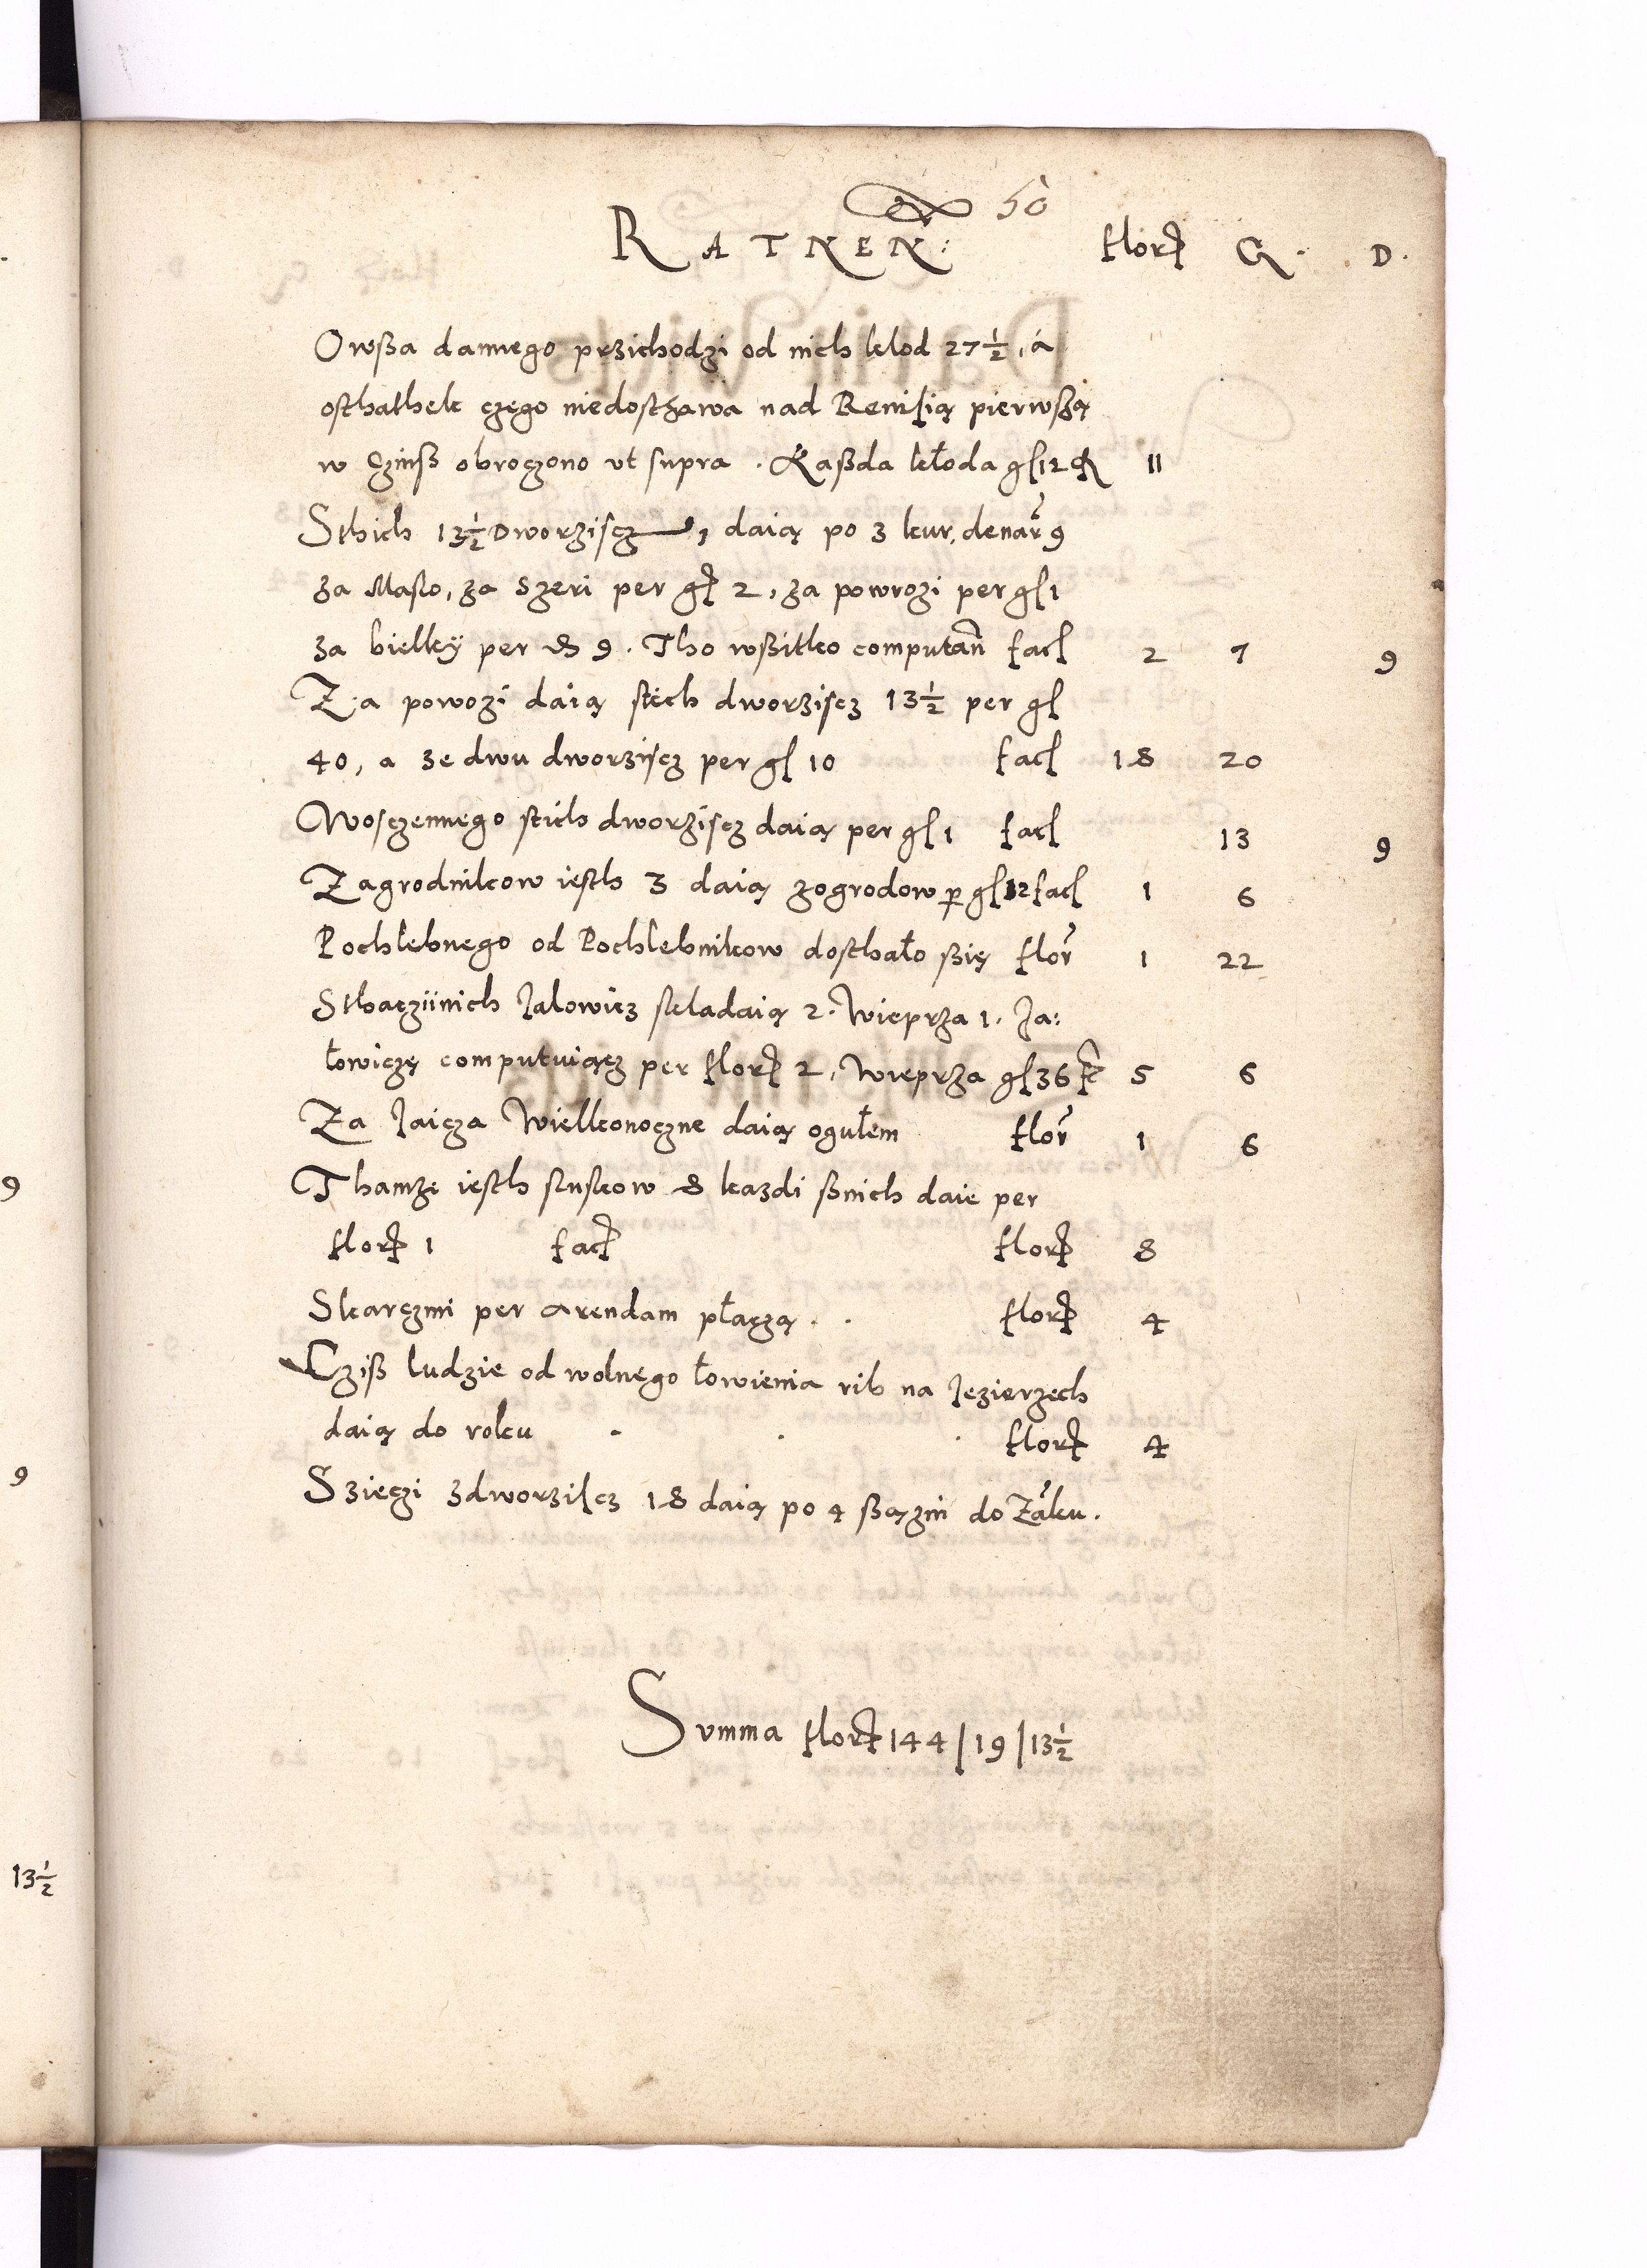 50
RATNEN: flor G. D.
Owßa dannego przichodzi od nich kłod 27 1/2, á
osthathek czego niedosthawa nad Reuisią pierwßą
w Czinß obroczono vt supra. Kaßda kłoda gſ 12 11
Sthich 13 1/2 Dworzisez, daią po 3 kur, denar 9
za Masło, za Szeri per gſ 2, za powrozi per gſ 1
za bielky per 8 9. Tho wßitko computan̄ facſ 2 7 9
Za powozi daią stich dworziscz 13 1/2 per gſ
40, a ze dwu dworziscz per gſ 10 facſ 18 20
Wosczennego stich dworziscz daią per gſ 1 facſ 13 9
Zagrodnikow iesth 3 daią zogrodow p gſ 12 facſ 1 6
Pochlebnego od Pochlebnikow dosthało ßię flor 1 22
Sthaczÿnich Jalowicz składaią 2. Wieprza 1. Ja:
łowiczę computuiącz per flor 2, Wieprza gſ 36 5 6
Za Jaicza Wielkonoczne daią ogułem flor 1 6
Thamże iesth sluskow 8 kazdi ßnich daie per
flor 1 fac flor 8
Skarczmi per arendam płaczą . . flor 4
Cziß ludzie od wolnego łowienia rib na Jezierzech
daią do roku . . . flor 4
Szieczi zdworziscz 18 daią po 4 ßązni do Zāku.
Summa flor 144 | 19 | 13 1/2
9
9
13 1/2